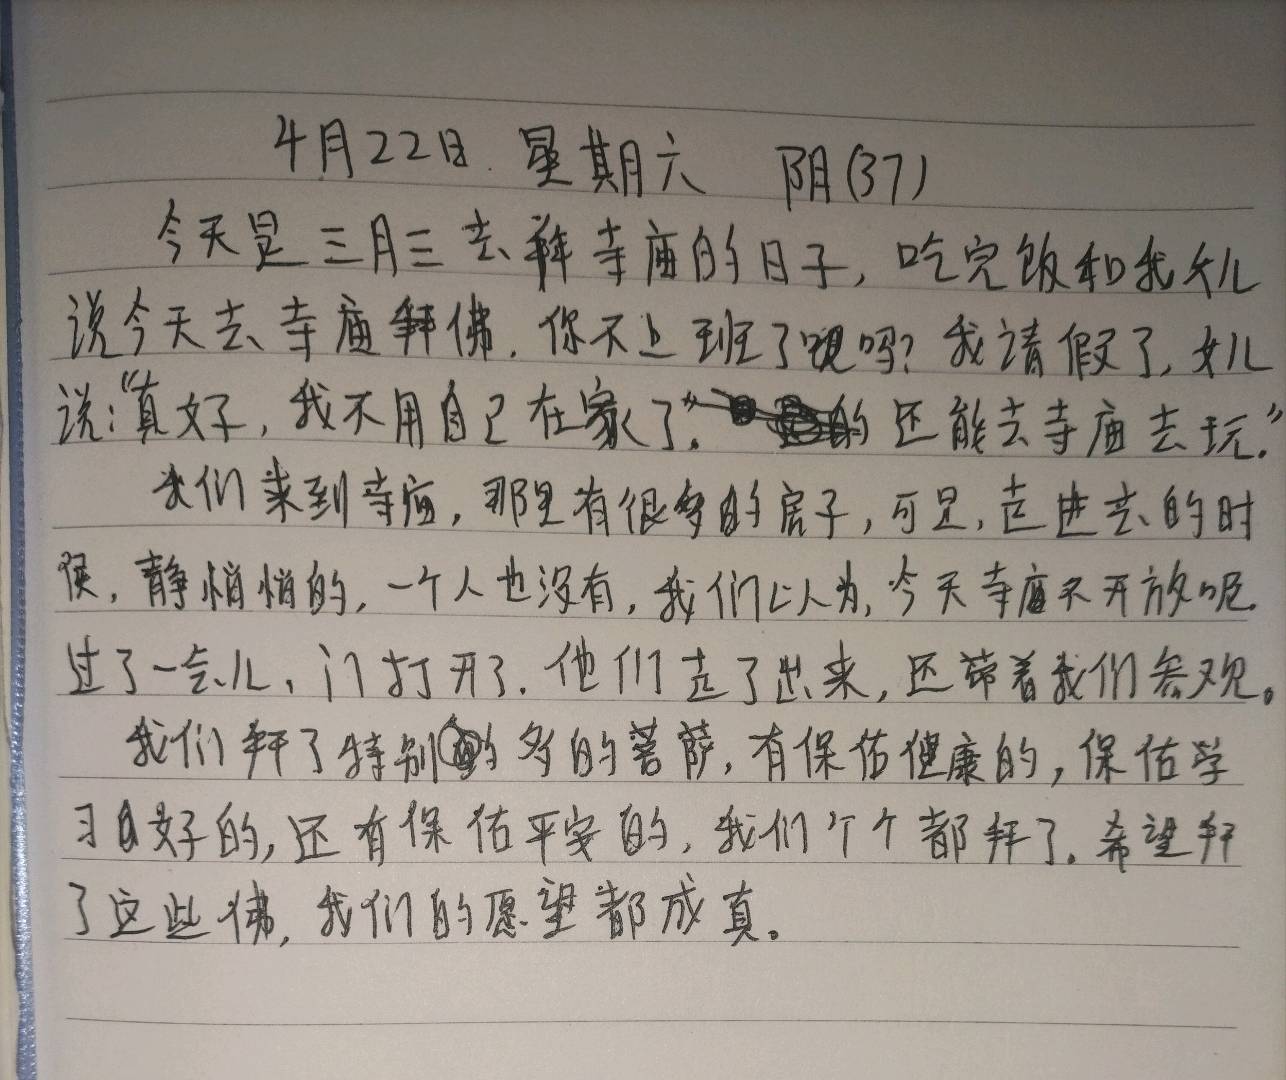 4月22日.星期六 阴(37)
今天是三月三去拜寺庙的日子,吃完饭和我女儿
说今天去寺庙拜佛.你不上班了吗?我请假了,女儿
说:“真好,我不用自己在家了”.的还能去寺庙去玩.”
我们来到寺庙,那里有很多的房子,可是,走进去的时
侯,静悄悄的,一个人也没有,我们以为,今天寺庙不开放呢.
过了一会儿,门打开了.他们走了出来,还带着我们参观。
我们拜了特别多的菩萨,有保佑健康的,保佑学
习好的,还有保佑平安的,我们个个都拜了.希望拜
了这些佛,我们的愿望都成真。